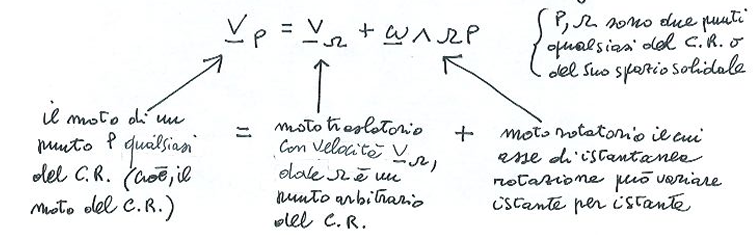 V_P = V_Ω + ω ∧ ΩP
{ P, Ω sono due punti
qualsiasi del C.R. o
del suo spazio solidale
il moto di un
punto P qualsiasi
del C.R. (cioè, il
moto del C.R.)
=
moto traslatorio
con velocità V_Ω,
dove Ω è un
punto arbitrario
del C.R.
+
moto rotatorio il cui
asse di istantanea
rotazione può variare
istante per istante